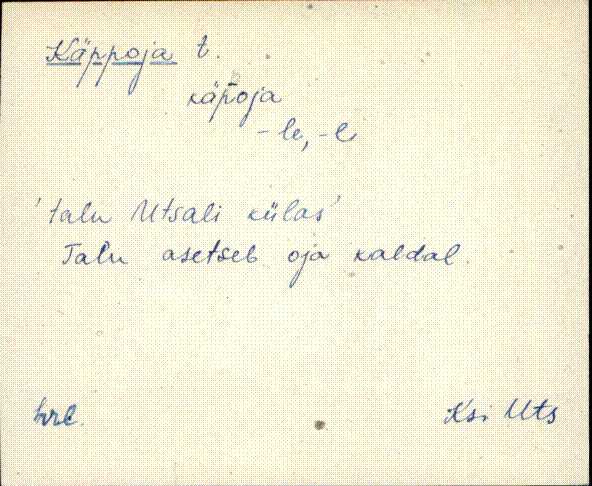 Käppoja t.
käp̄oja
-le, -l
'talu Utsali külas'
Talu asetseb oja kaldal.
Ksi Uts